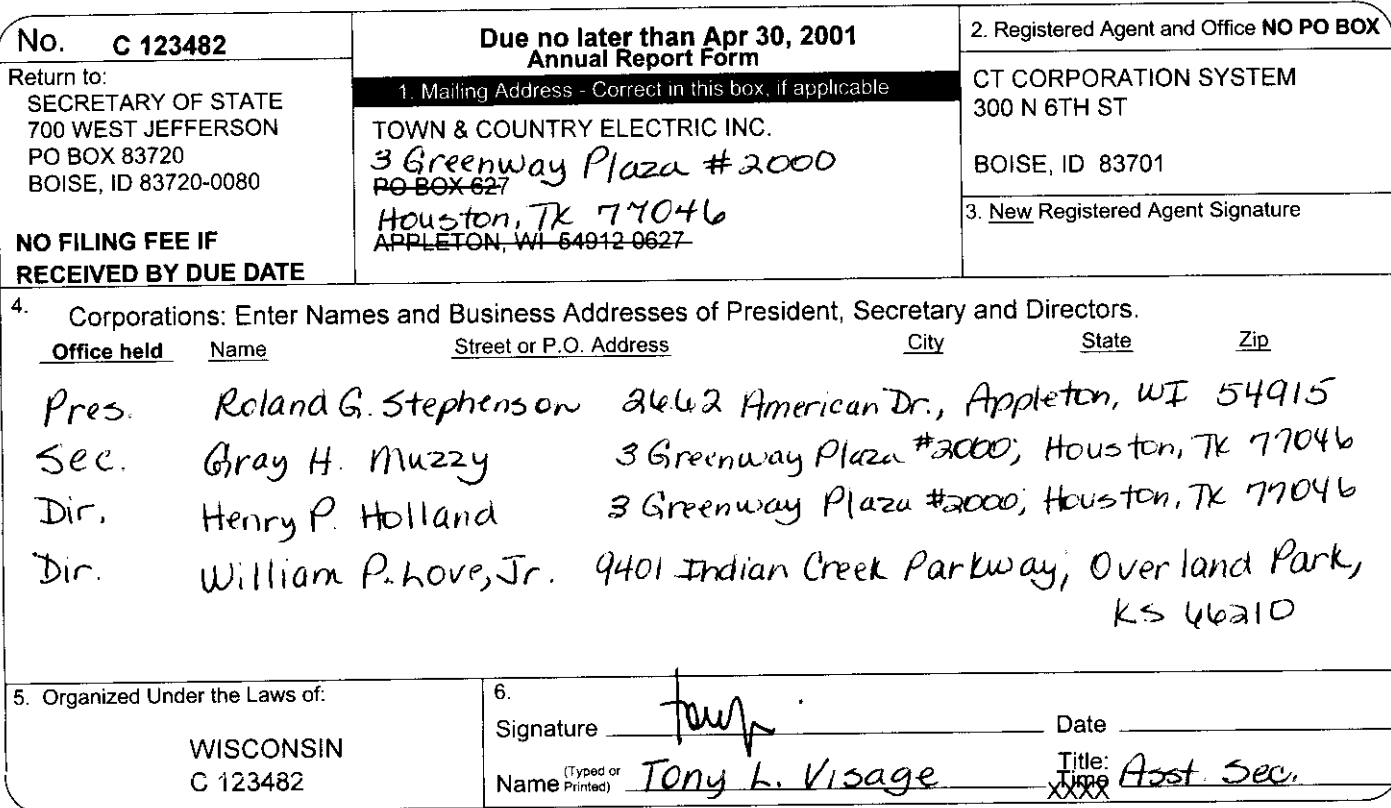 No. C 123482
Return to:
SECRETARY OF STATE
700 WEST JEFFERSON
PO BOX 83720
BOISE, ID 83720-0080
NO FILING FEE IF
RECEIVED BY DUE DATE
Due no later than Apr 30, 2001
Annual Report Form
1. Mailing Address - Correct in this box, if applicable
TOWN & COUNTRY ELECTRIC INC.
3 Greenway Plaza #2000
PO BOX 627
Houston, TX 77046
APPLETON, WI 54912 0627
2. Registered Agent and Office NO PO BOX
CT CORPORATION SYSTEM
300 N 6TH ST
BOISE, ID 83701
3. New Registered Agent Signature
4. Corporations: Enter Names and Business Addresses of President, Secretary and Directors.
Office held Name Street or P.O. Address City State Zip
Pres. Roland G. Stephenson 2662 American Dr., Appleton, WI 54915
Sec. Gray H. Muzzy 3 Greenway Plaza #2000; Houston, TX 77046
Dir. Henry P. Holland 3 Greenway Plaza #2000; Houston, TX 77046
Dir. William P. Love, Jr. 9401 Indian Creek Parkway, Overland Park,
KS 66210
5. Organized Under the Laws of:
WISCONSIN
C 123482
6.
Signature Date
Name (Typed or Printed) Tony L. Visage Title: Asst. Sec.